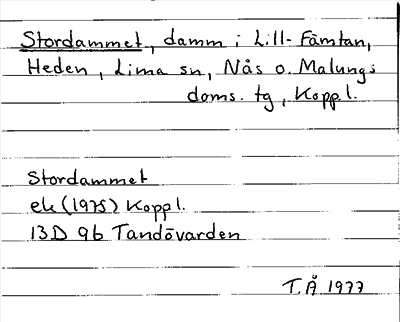 Stordammet, damm i Lill-Fämtan,
Heden, Lima sn, Nås o. Malungs
doms. tg, Kopp.l.
Stordammet
ek (1975) Kopp l.
13D 9b Tandövarden
T.Å 1977